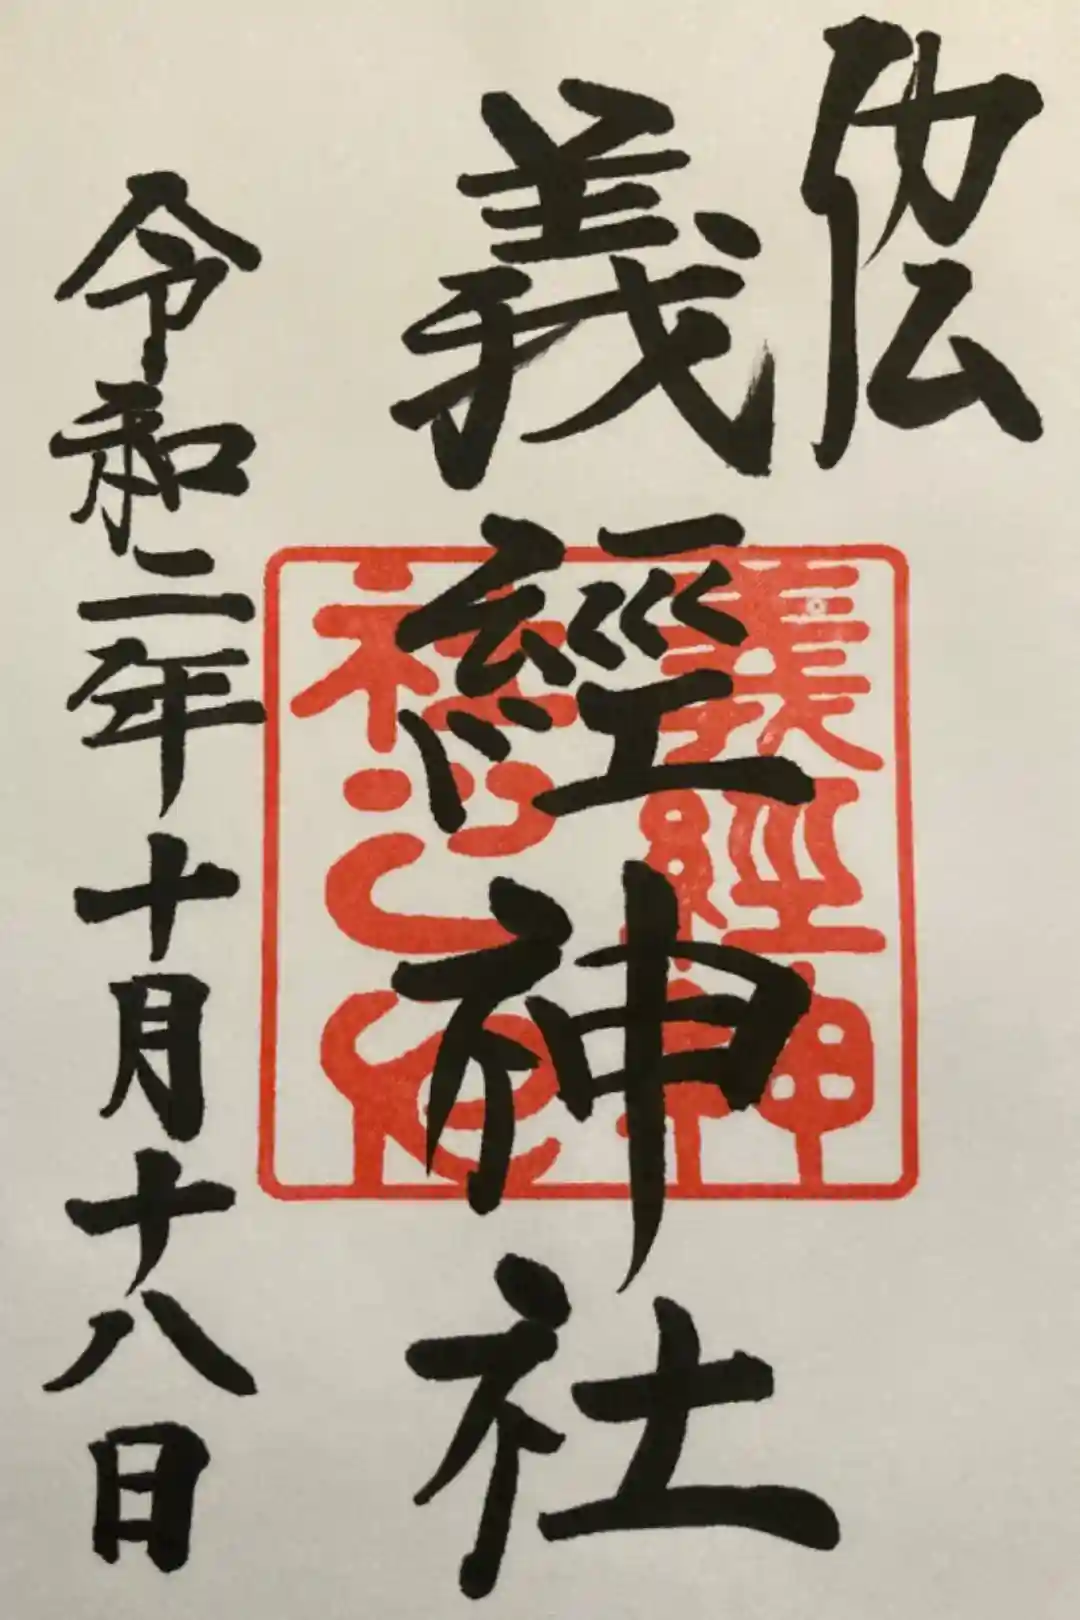 義經神社
令和二年十月十八日
義經神
社之印